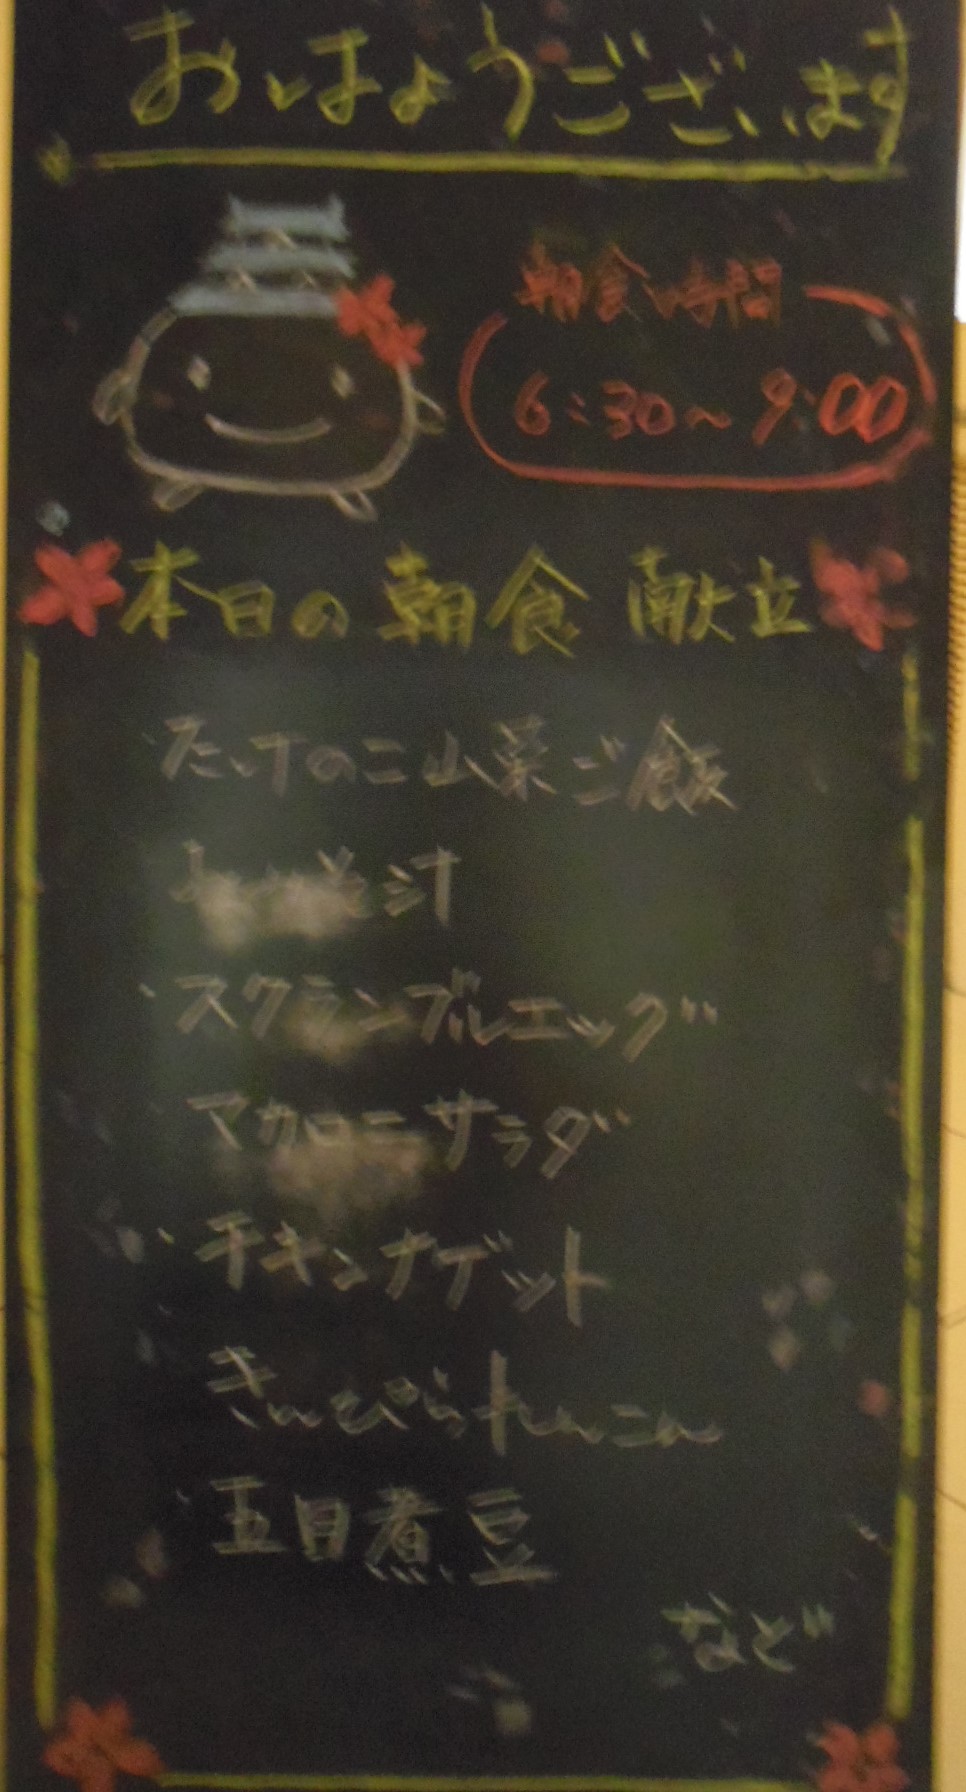 おはようございます
朝食時間
6:30～9:00
本日の朝食献立
たけのこ山菜ご飯
汁
スクランブルエッグ
マカロニサラダ
チキンナゲット
きんぴられんこん
五目煮豆
など